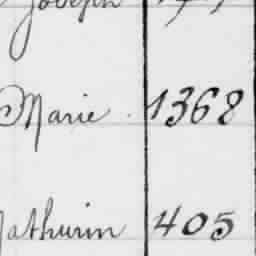 Joseph
Marie 1368
Mathurin 405